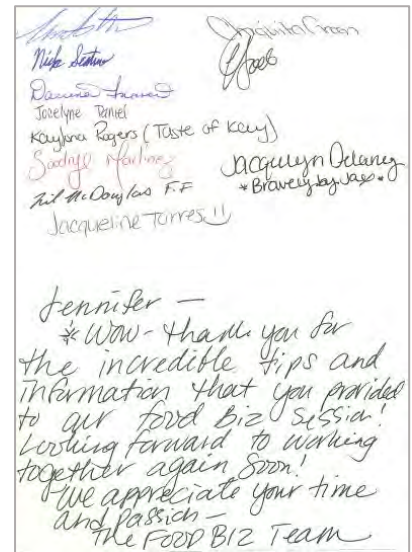 Chiquita Green
Nick
Jocelyne Daniel
Kaylona Rogers (Taste of Kay)
Martinez
Jacquelyn Delaney
*Bravely by Jax*
McDouglas F.F
Jacqueline Torres
Jennifer —
* Wow - thank you for
the incredible tips and
information that you provided
to our food Biz session!
Looking forward to working
together again soon!
We appreciate your time
and passion —
The FOOD BIZ Team